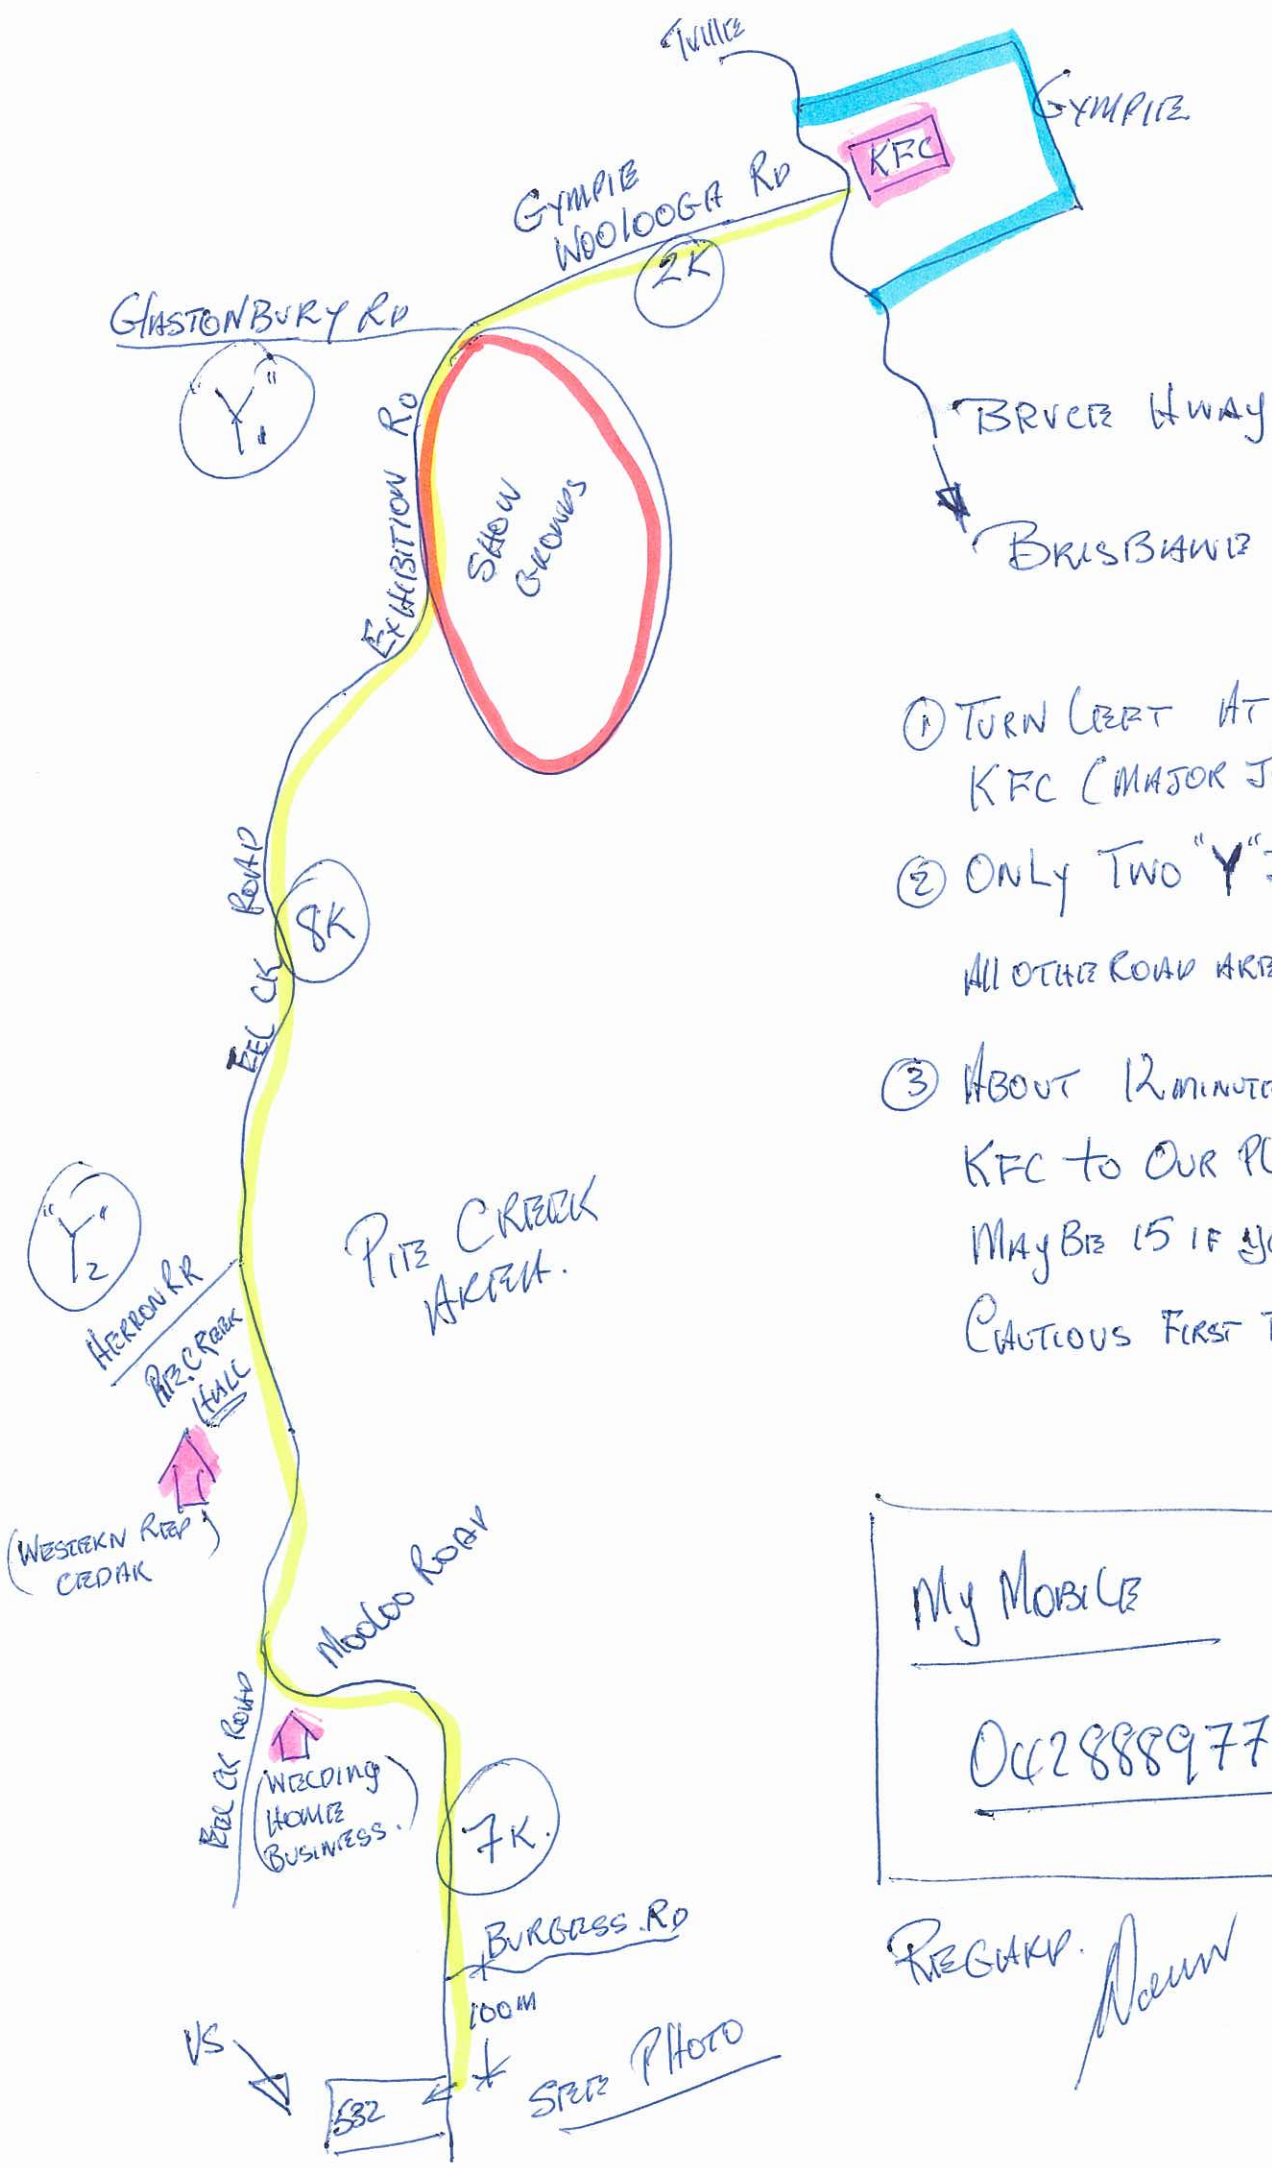 T'ville
GYMPIE
KFC
GYMPIE
WOOLOOGA RD
2K
GLASTONBURY RD
"Y"1
EXHIBITION RD
SHOW
GROUNDS
BRUCE HWAY
BRISBANE
① TURN LEFT AT
KFC (MAJOR J
② ONLY TWO "Y"
ALL OTHE ROAD ARE
③ ABOUT 12 MINUTE
KFC to OUR PL
MAYBE 15 IF yo
CAUTIOUS FIRST T
EEL CK ROAD
8K
"Y"2
HERRON RR
PIE CREEK
HALL
PIE CREEK
AREA.
(WESTERN RED)
CEDAR
MOOLOO ROAD
EEL CK ROAD
(WELDING
HOME
BUSINESS.)
7K.
My MOBILE
042888977
BURGESS. RD
100M
US
532
SEE PHOTO
REGARD.